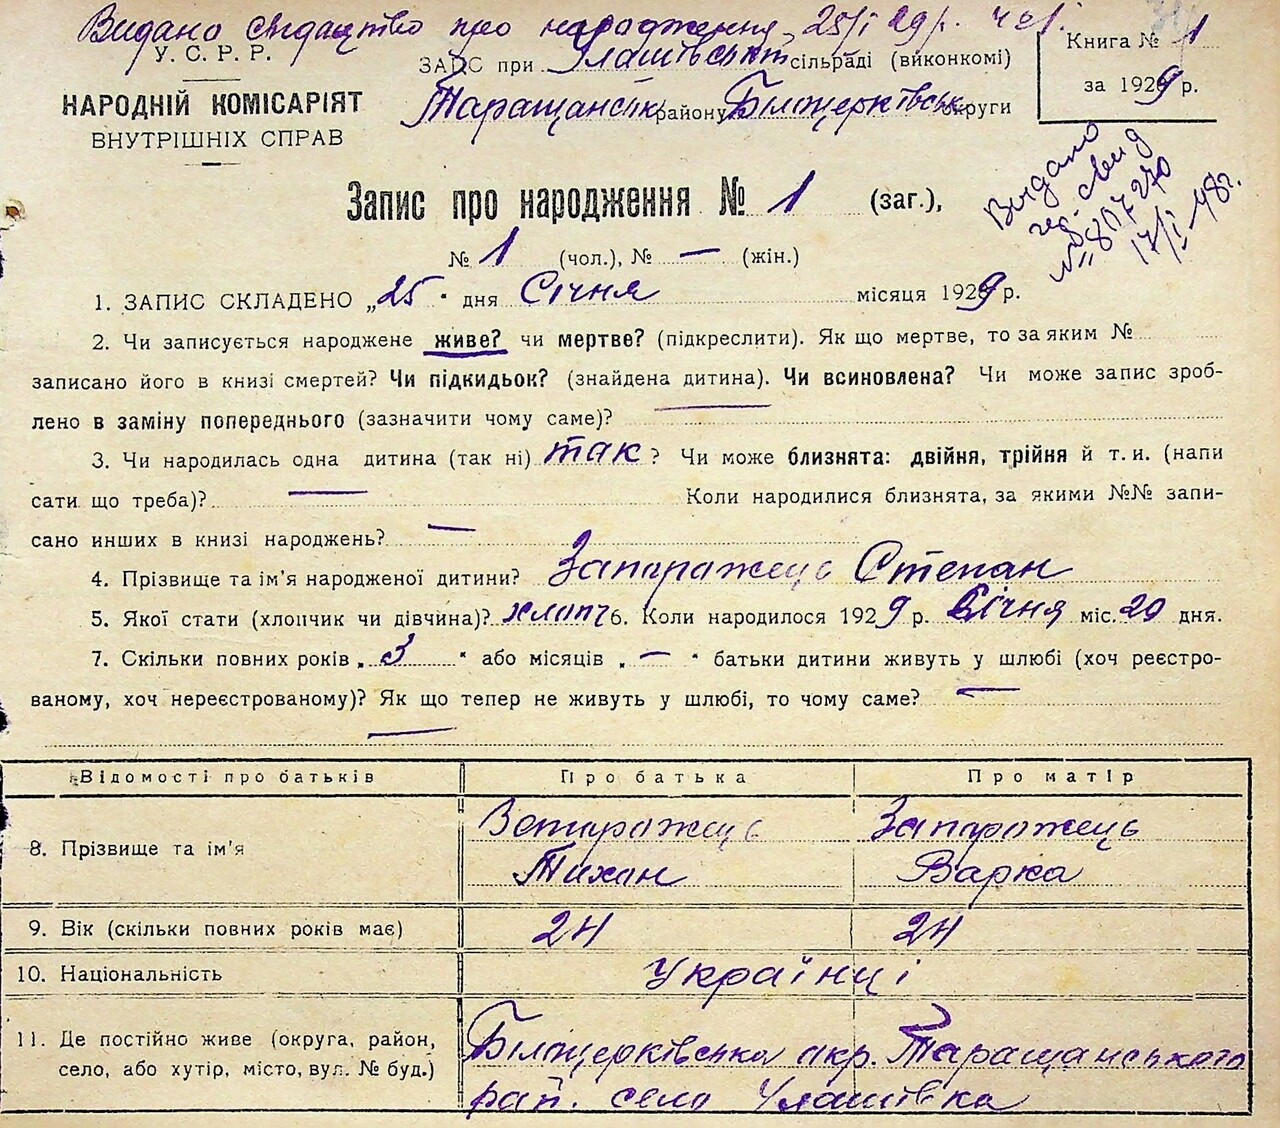 Видано свідацтво про народження 25/I 29 р.
У. С. Р. Р.
НАРОДНІЙ КОМІСАРІЯТ
ВНУТРІШНІХ СПРАВ
ЗАГС при Улашівській сільраді (виконкомі)
Таращанськ району Білоцерківськ округи
Книга № 1
за 1929 р.
Видано
свид
№ 807270
17/I-48г.
Запис про народження № 1 (заг.),
№ 1 (чол.), № — (жін.)
1. ЗАПИС СКЛАДЕНО „25" дня Січня місяця 1929 р.
2. Чи записується народжене живе? чи мертве? (підкреслити). Як що мертве, то за яким №
записано його в книзі смертей? Чи підкидьок? (знайдена дитина). Чи всиновлена? Чи може запис зроб-
лено в заміну попереднього (зазначити чому саме)?
3. Чи народилась одна дитина (так ні) так? Чи може близнята: двійня, трійня й т. и. (напи
сати що треба)? — Коли народилися близнята, за якими №№ запи-
сано инших в книзі народжень? —
4. Прізвище та ім'я народженої дитини? Запаражець Степан
5. Якої стати (хлопчик чи дівчина)? хлопч 6. Коли народилося 1929 р. Січня міс. 20 дня.
7. Скільки повних років „3" або місяців „—" батьки дитини живуть у шлюбі (хоч реєстро-
ваному, хоч нереєстрованому)? Як що тепер не живуть у шлюбі, то чому саме? —
—
Відомості про батьків Про батька Про матір
8. Прізвище та ім'я
Запаражець Запаражець
Тихан Варка
9. Вік (скільки повних років має) 24 24
10. Національність Українці
11. Де постійно живе (округа, район,
село, або хутір, місто, вул. № буд.)
Білоцерківська окр. Таращанського
рай. село Улашівка